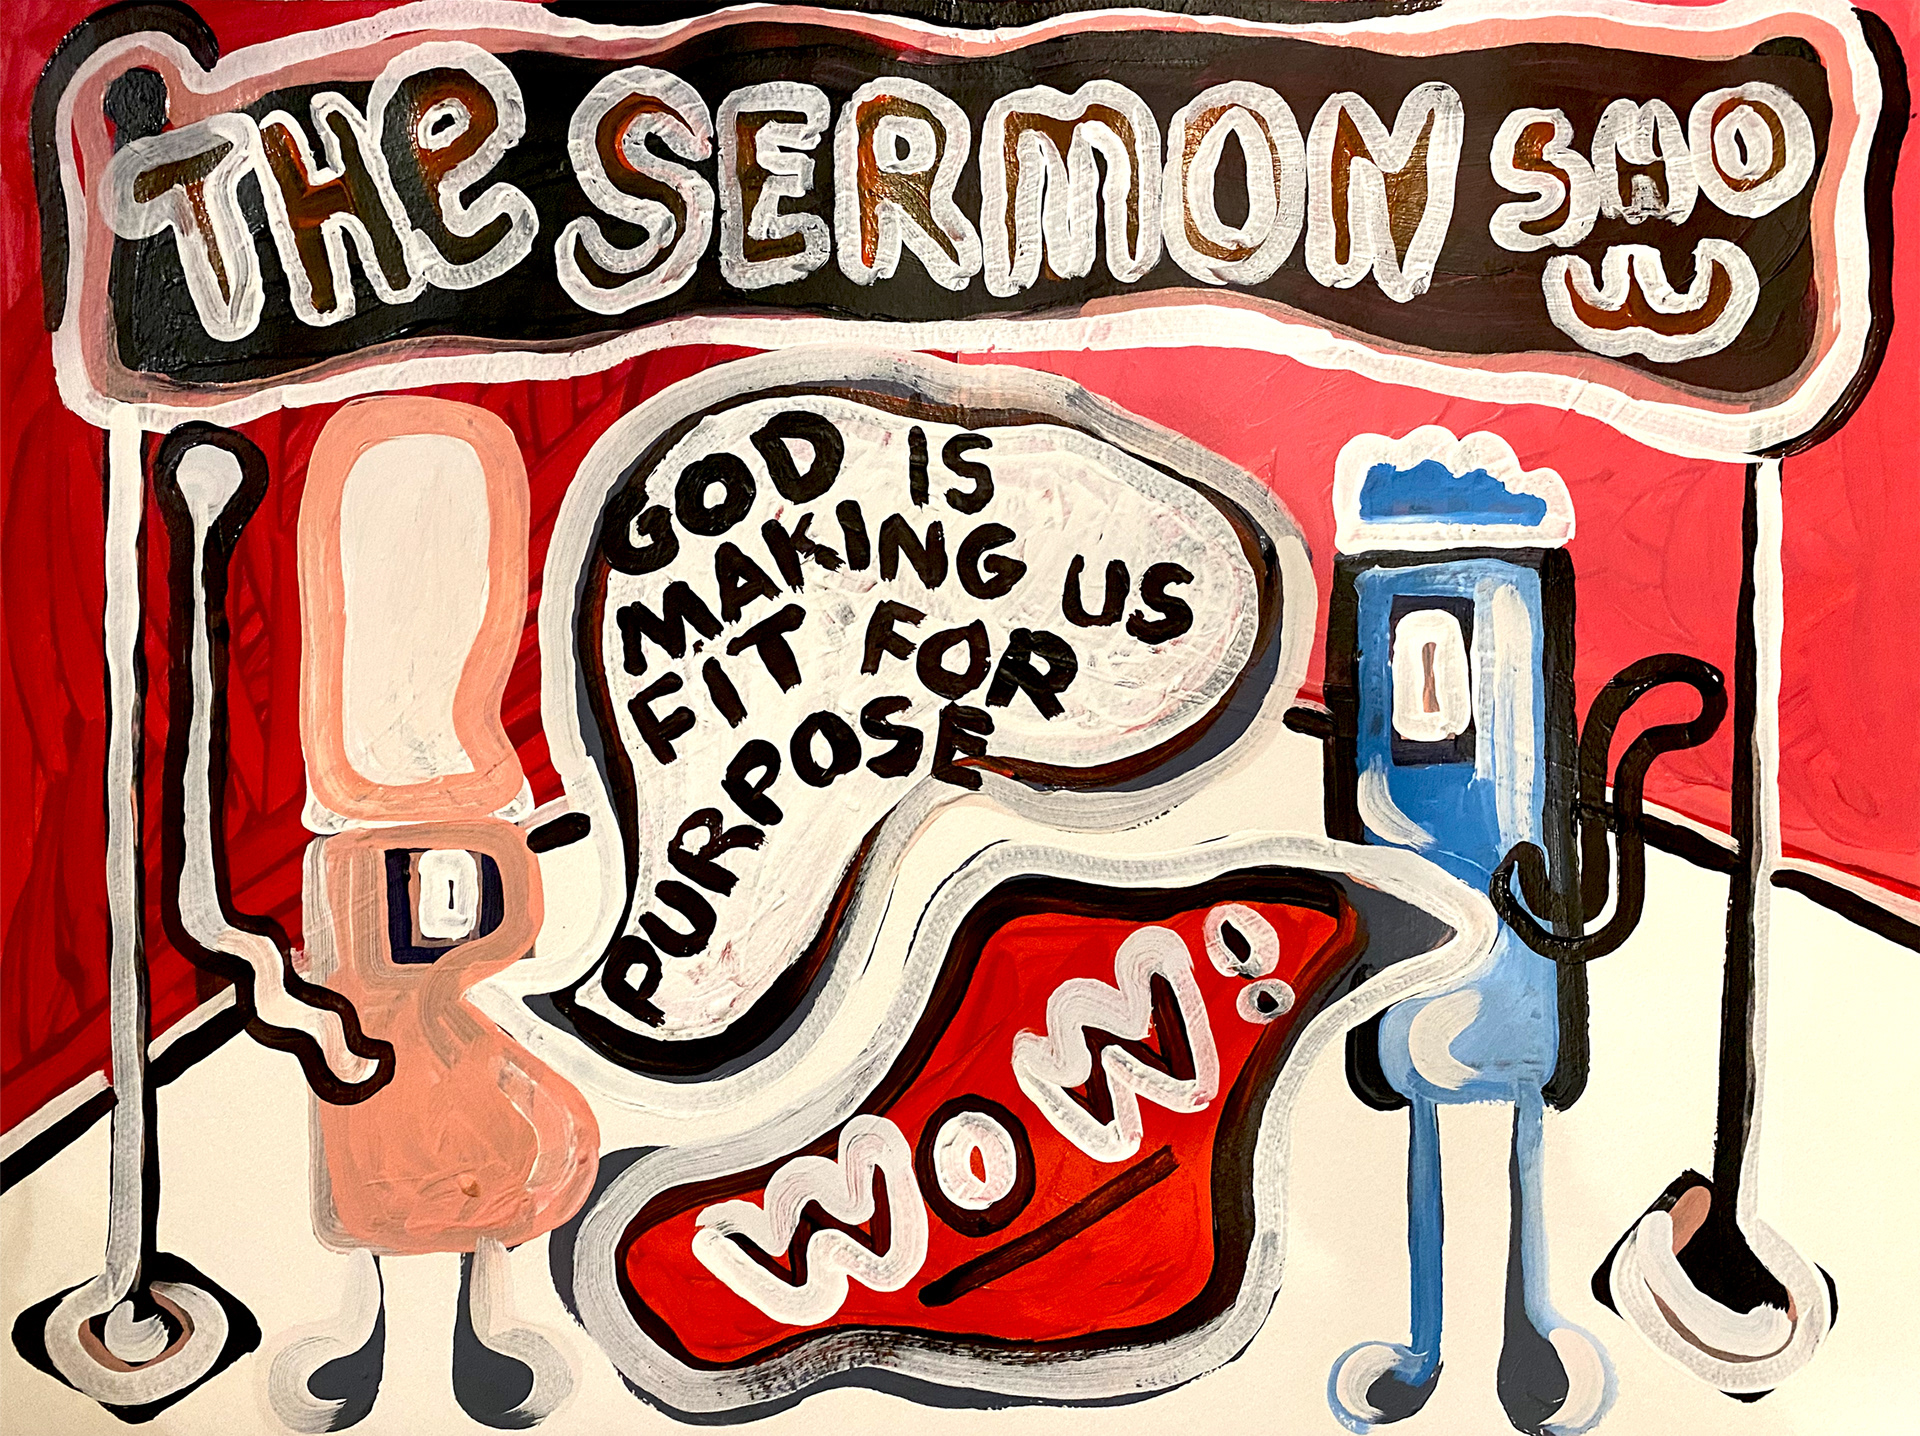 THE SERMON SHOW
GOD IS
MAKING US
FIT FOR
PURPOSE
WOW!